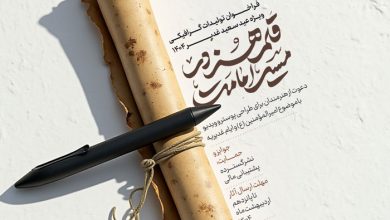 فراخوان تولیدات گرافیکی
ویژه عید سعید غدیر ۱۴۰۴
قلم هنر در
مسیر امامت
دعوت از هنرمندان برای طراحی پوستر و ویدیو
با موضوع امیرالمؤمنین (ع) و ایام غدیریه
جوایز و
حمایت
نشر گسترده
پشتیبانی مالی
مهلت ارسال آثار
تا پانزدهم
اردیبهشت ماه